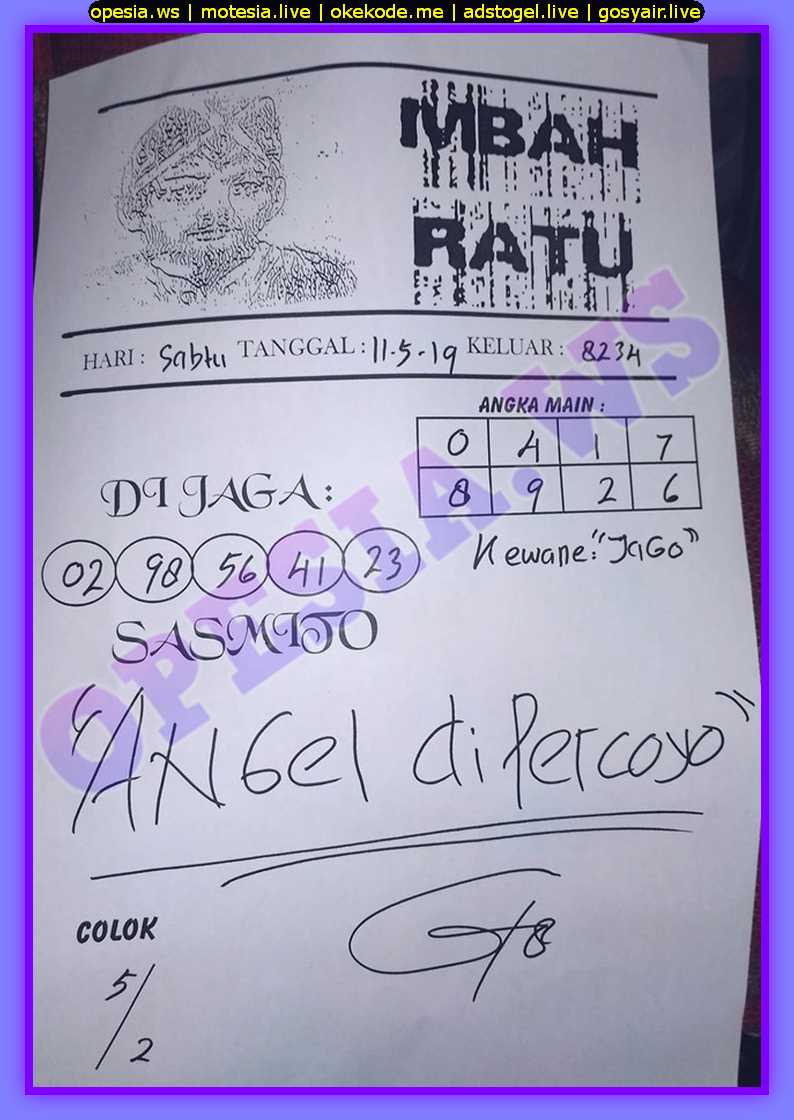 opesia.ws | motesia.live | okekode.me | adstogel.live | gosyair.live
MBAH
RATU
HARI : Sabtu TANGGAL : 11-5-19 KELUAR : 8234
ANGKA MAIN :
0 4 1 7
8 9 2 6
DI JAGA :
02 98 56 41 23
Kewane: "JAGO"
SASMITO
"ANGel diPercoyo"
COLOK
5/2
OPESIA.WS